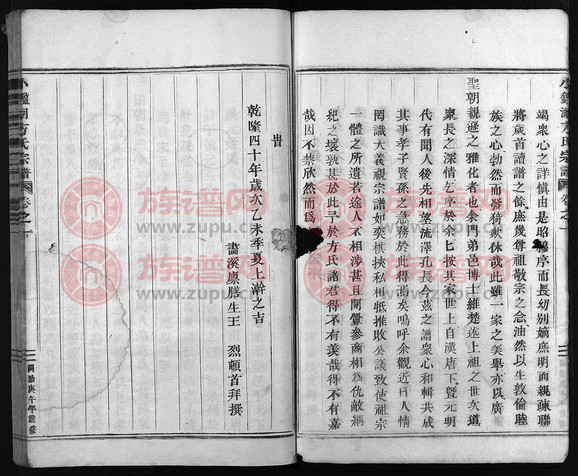 小鑑湖方氏宗譜 卷之一
竭衆心之詳慎由是昭穆序而長幼別嫡庶明而親疎聯
將歲首讀譜之餘庶幾尊祖敬宗之念油然以生敦倫睦
族之心勃然而發猗歟休哉此雖一家之美舉亦以廣
聖朝親遜之雅化者也余門弟邑博士維楚述上祖之世次道
衆長之深情乞序於余按其家世上自漢唐下暨元明
代有聞人後先相望流澤孔長今茲之譜衆心和輯共成
其事孝子賢孫之急務於此得焉嗚呼余觀近日人情
罔識大義視宗譜如奕棋挾私相牴推敗公議致使祖宗
一體之所遺若途人不相涉甚且開釁參商相為仇敵網
紀之壞孰甚於此予於方氏譜君得不有羨哉得不有嘉
哉因不禁欣然而為
旹
乾隆四十年歲次乙未季夏上澣之吉
畵溪廩膳生王 烈頓首拜撰
小鑑湖方氏宗譜 卷之一
同治庚午年重修
族谱网
www.zupu.cn
族谱网
www.zupu.cn
族谱网
www.zupu.cn
族谱网
www.zupu.cn